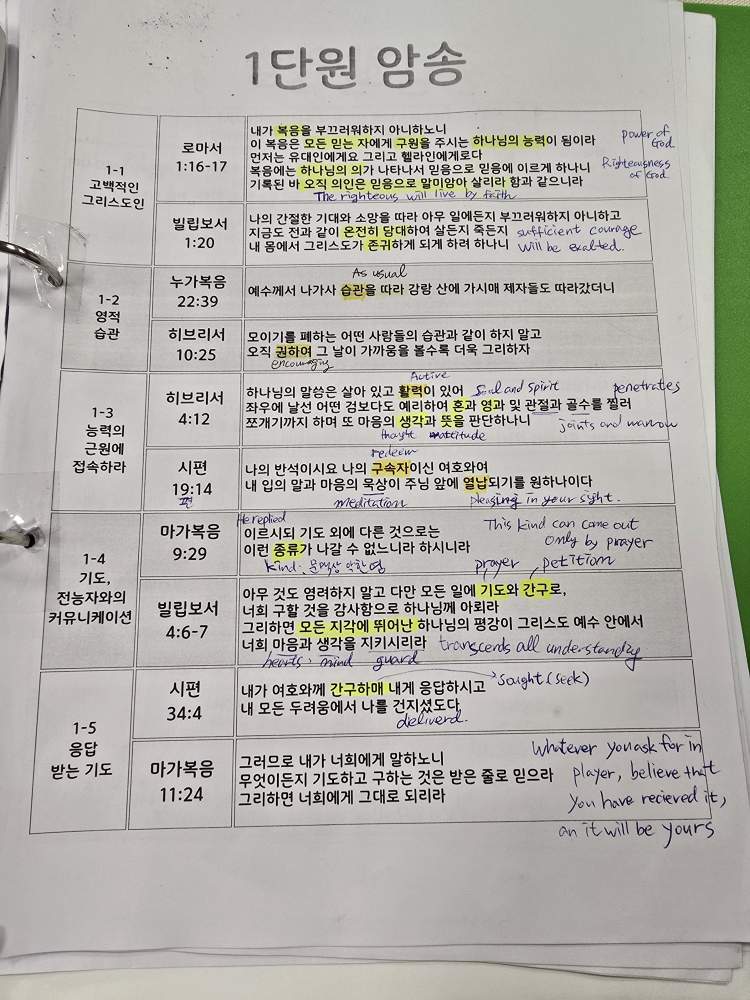 1단원 암송
1-1
고백적인
그리스도인
로마서
1:16-17
내가 복음을 부끄러워하지 아니하노니
이 복음은 모든 믿는 자에게 구원을 주시는 하나님의 능력이 됨이라
power of
God
먼저는 유대인에게요 그리고 헬라인에게로다
복음에는 하나님의 의가 나타나서 믿음으로 믿음에 이르게 하나니
Righteousness
of God
기록된 바 오직 의인은 믿음으로 말미암아 살리라 함과 같으니라
The righteous will live by faith
빌립보서
1:20
나의 간절한 기대와 소망을 따라 아무 일에든지 부끄러워하지 아니하고
지금도 전과 같이 온전히 담대하여 살든지 죽든지 sufficient courage
내 몸에서 그리스도가 존귀하게 되게 하려 하나니 will be exalted.
1-2
영적
습관
누가복음
22:39
As usual
예수께서 나가사 습관을 따라 감람 산에 가시매 제자들도 따라갔더니
히브리서
10:25
모이기를 폐하는 어떤 사람들의 습관과 같이 하지 말고
오직 권하여 그 날이 가까움을 볼수록 더욱 그리하자
encouraging
1-3
능력의
근원에
접속하라
히브리서
4:12
Active
하나님의 말씀은 살아 있고 활력이 있어 Soul and spirit penetrates
좌우에 날선 어떤 검보다도 예리하여 혼과 영과 및 관절과 골수를 찔러
쪼개기까지 하며 또 마음의 생각과 뜻을 판단하나니 joints and marrow
thought attitude
시편
19:14
편
redeem
나의 반석이시요 나의 구속자이신 여호와여
내 입의 말과 마음의 묵상이 주님 앞에 열납되기를 원하나이다
meditation pleasing in your sight.
1-4
기도,
전능자와의
커뮤니케이션
마가복음
9:29
He replied
이르시되 기도 외에 다른 것으로는
이런 종류가 나갈 수 없느니라 하시니라
This kind can come out
only by prayer
kind: 문맥상 악한 영
빌립보서
4:6-7
prayer, petition
아무 것도 염려하지 말고 다만 모든 일에 기도와 간구로,
너희 구할 것을 감사함으로 하나님께 아뢰라
그리하면 모든 지각에 뛰어난 하나님의 평강이 그리스도 예수 안에서
너희 마음과 생각을 지키시리라 transcends all understandig
hearts, mind guard
1-5
응답
받는 기도
시편
34:4
내가 여호와께 간구하매 내게 응답하시고 Sought (seek)
내 모든 두려움에서 나를 건지셨도다
deliverd.
마가복음
11:24
그러므로 내가 너희에게 말하노니
무엇이든지 기도하고 구하는 것은 받은 줄로 믿으라
그리하면 너희에게 그대로 되리라
Whatever you ask for in
player, believe that
you have recieved it,
an it will be yours